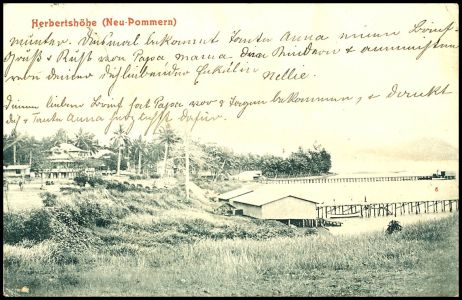 Herbertshöhe (Neu-Pommern)
munter. Diesmal bekommt Tante Anna einen Brief.
Gruß & Kuß von Papa Mama den Kindern &
von Deiner Dich liebenden Enkelin Nellie.
Deinen lieben Brief hat Papa vor 2 Tagen bekommen, & dankt
Dir & Tante Anna herzlichst dafür.